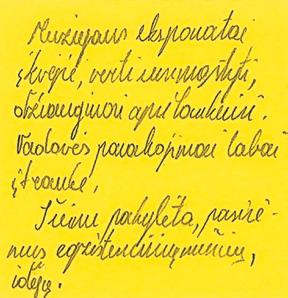 Muziejaus eksponatai
įkvėpė, verti susimąstyti,
džiaugiuosi apsilankiusi.
Vadovės pasakojimai labai
įtraukė,
Išeinu pakylėta, pasirė-
mus egzistencinių minčių,
idėjų.